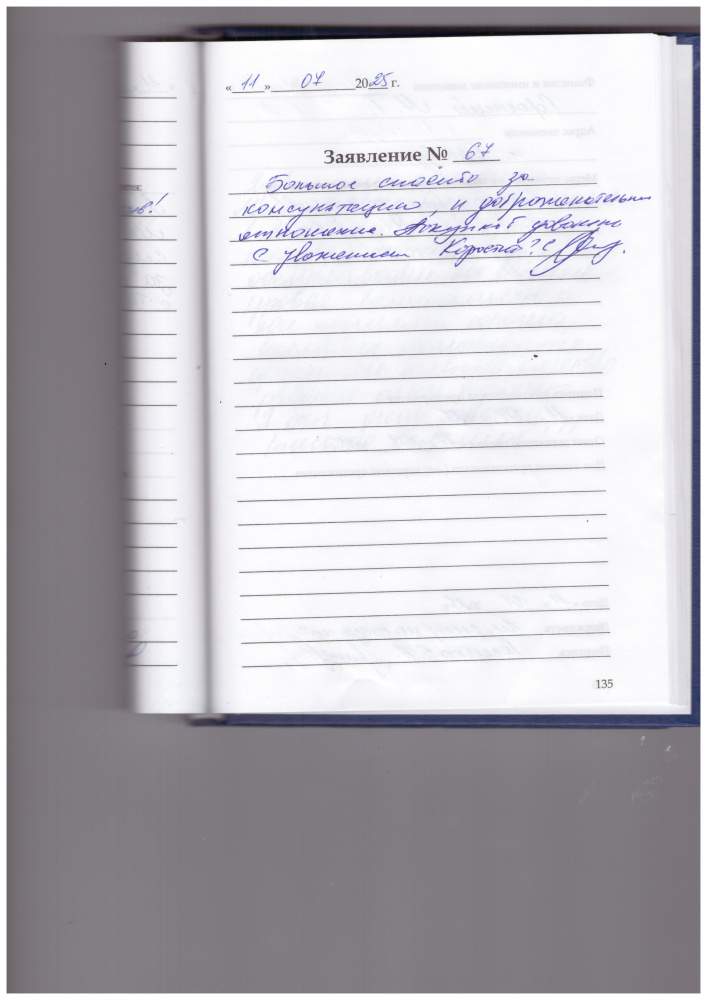 «11» 07 2025 г.
Заявление № 67
Большое спасибо за
консультацию, и доброжелательное
отношение. Покупкой доволен
С Уважением
135